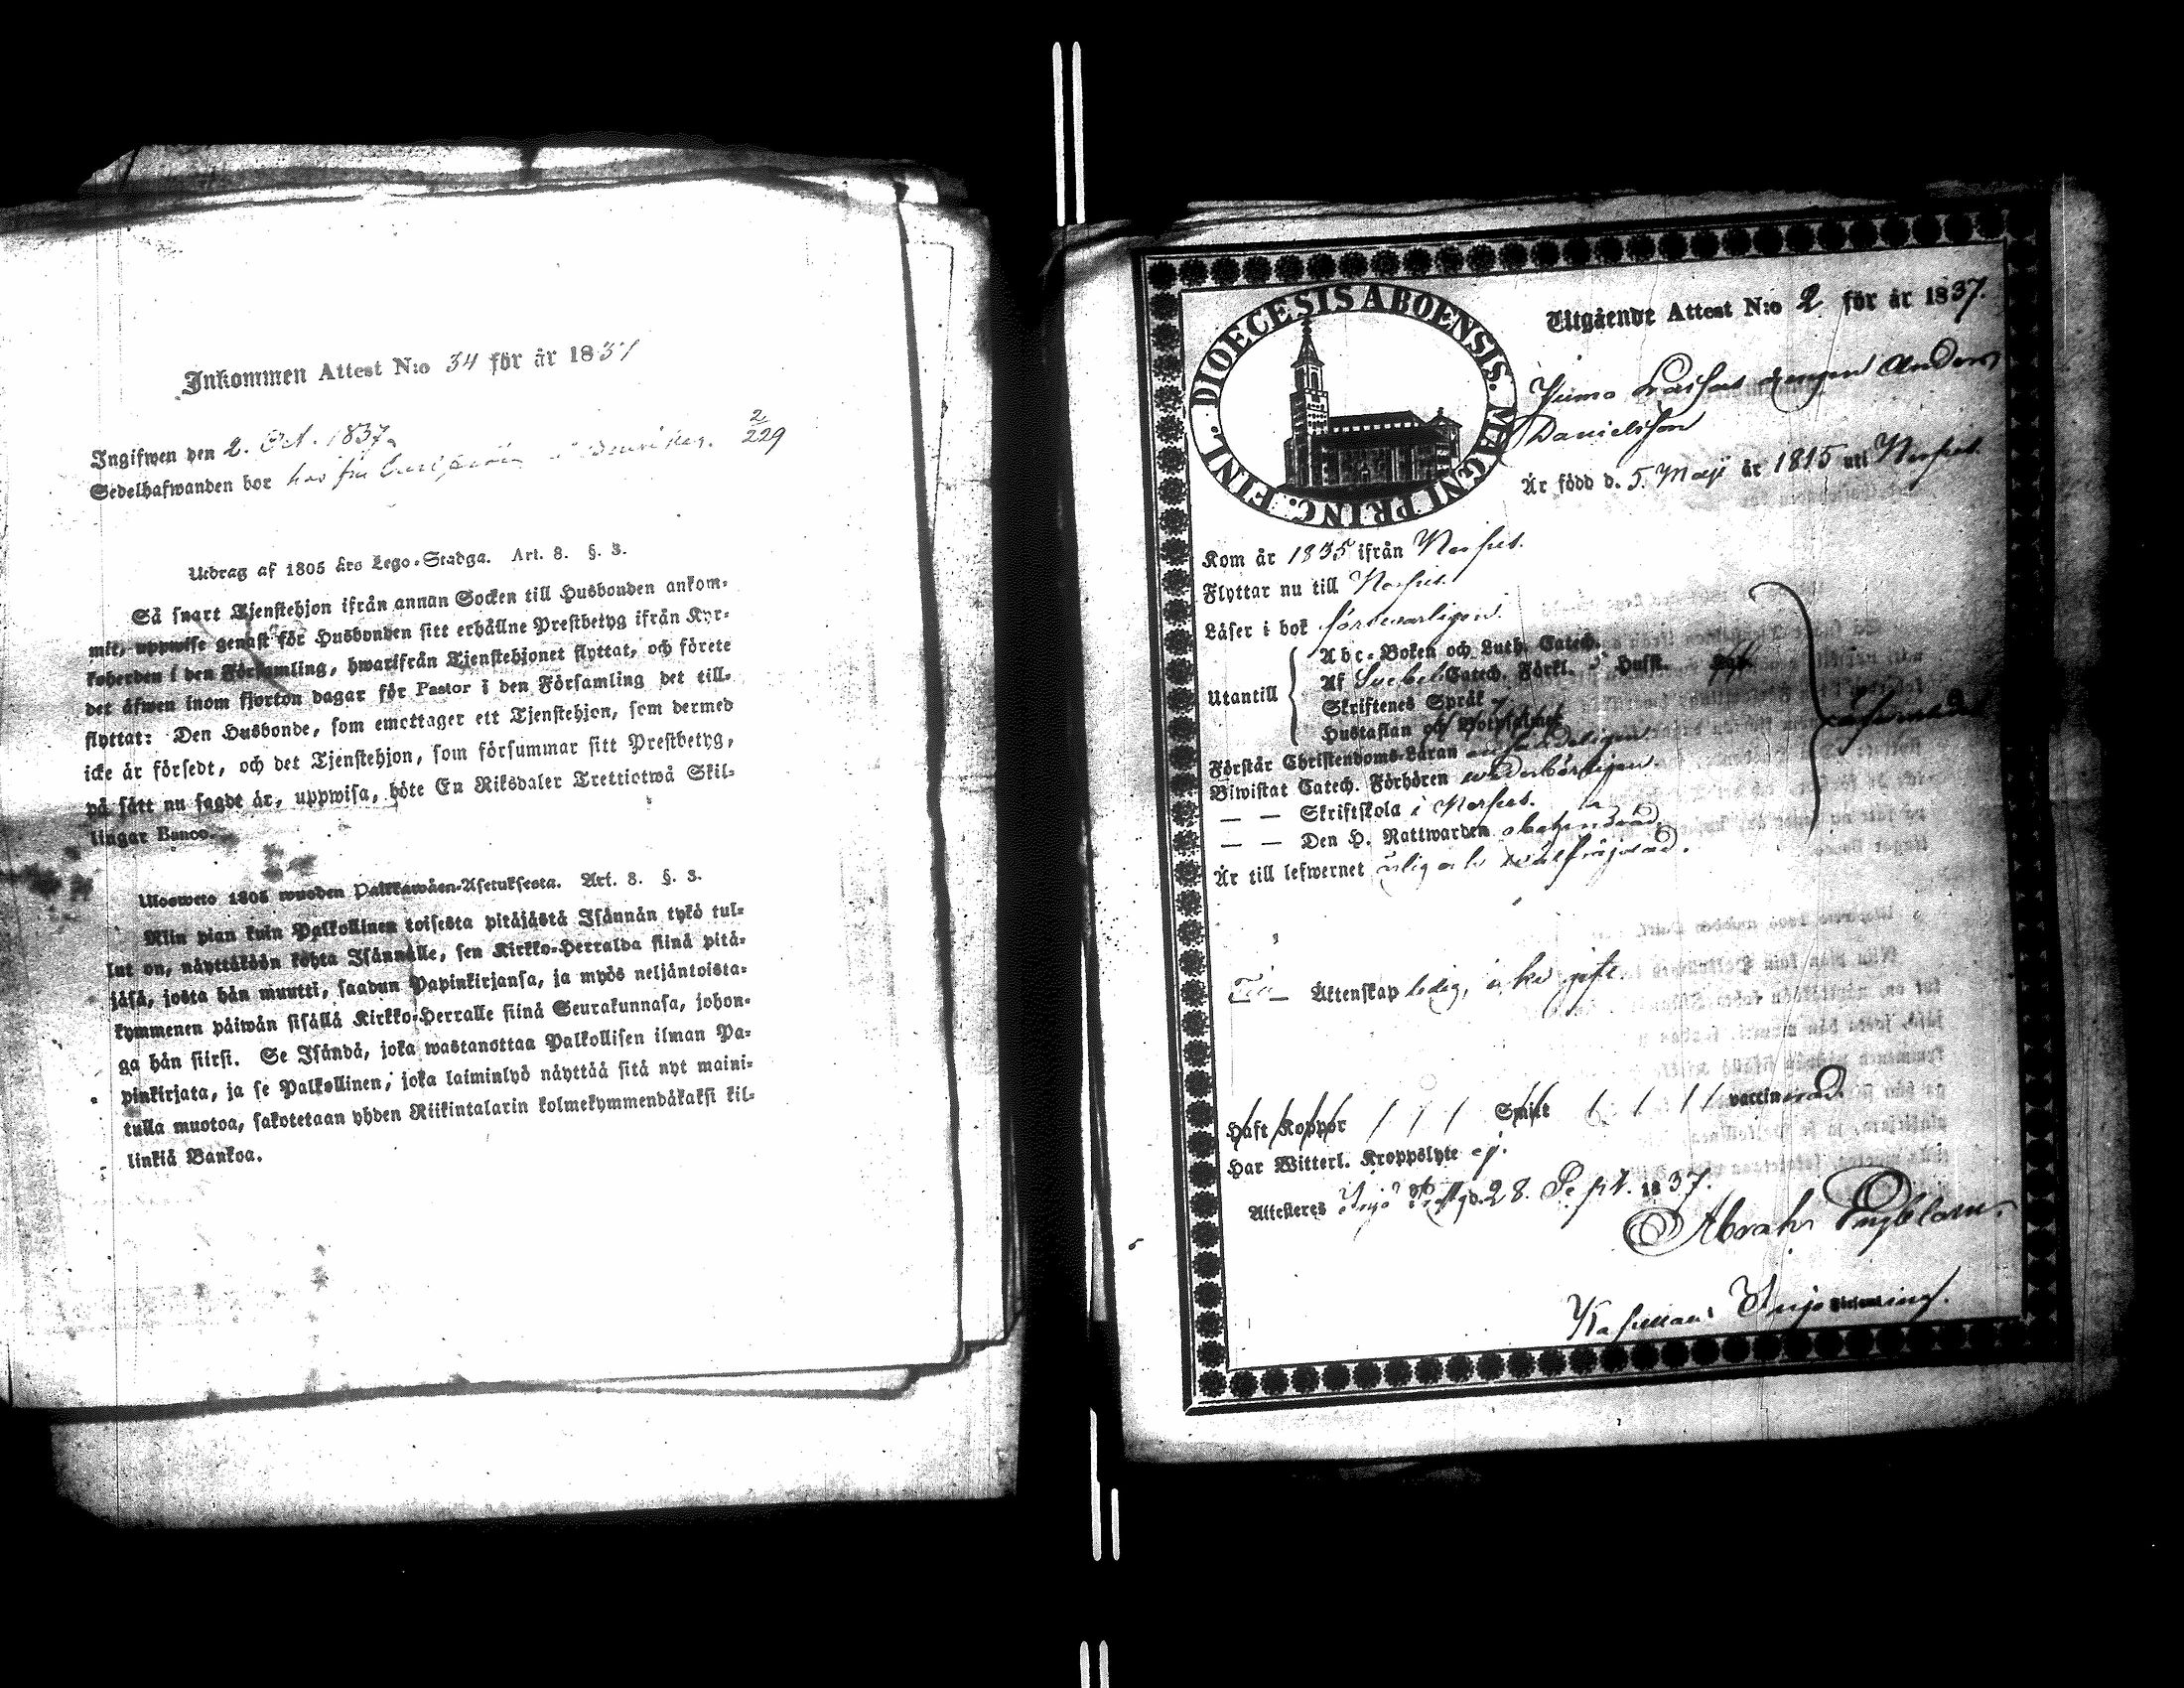 Inkommen Attest N:o 34 för år 1837
Ingifwen den 2. Oct. 1837.
Sedelhafwanden bor hos fru
2/229
Utdrag af 1805 års Lego-Stadga. Art. 8. §. 3.
Så snart Tjenstehjon ifrån annan Socken till Husbonden ankom-
mit, uppwise genast för Husbonden sitt erhållne Prestbetyg ifrån Kyr-
koherden i den Församling, hwarifrån Tjenstehjonet flyttat, och förete
det äfwen inom fjorton dagar för Pastor i den Församling det till-
flyttat: Den Husbonde, som emottager ett Tjenstehjon, som dermed
icke är försedt, och det Tjenstehjon, som försummar sitt Prestbetyg,
på sätt nu sagdt är, uppwisa, böte En Riksdaler Trettiotwå Skil-
lingar Banco.
Uloswето 1805 wuoden Palkkawäen-Asetuksesta. Art. 8. §. 3.
Niin pian kuin Palkollinen toisesta pitäjästä Isännän tykö tul-
lut on, näyttäköön kohta Isännälle, sen Kirkko-Herralda siinä pitä-
jäsä, josta hän muutti, saadun Papinkirjansa, ja myös neljäntoista-
kymmenen päiwän sisällä Kirkko-Herralle siinä Seurakunnasa, johon-
ga hän siirsi. Se Isändä, joka wastanottaa Palkollisen ilman Pa-
pinkirjata, ja se Palkollinen, joka laiminlyö näyttää sitä nyt maini-
tulla muotoa, sakotetaan yhden Riikintalarin kolmekymmendäkaksi kil-
linkiä Bankoa.
DIOECESIS ABOENSIS. MAGNI PRINC. FINL.
Utgående Attest N:o 2 för år 1837.
drengen Anders
Danielsson
Är född d. 5. Maji år 1815 uti Nerpes.
Kom år 1835 ifrån Nerpes.
Flyttar nu till Nerpes.
Läser i bok försvarligen.
Utantill
Abc-Boken och Luth. Catech.
Af Svebel. Catech. Förkl. Hust.
Skriftenes Språk
Hustaflan och Botpsalmer
Förstår Christendoms-Läran
Biwistat Catech. Förhören wederbörligen.
— — Skriftskola i Nerpes.
— — Den H. Nattwarden
Är till lefwernet ärlig och wälfräjdad.
Till Äktenskap ledig, icke gift.
Haft Koppor Smitt vaccinerad.
Har Witterl. Kroppslyte ej.
Attesteres d. 28. Sept. 1837.
Abrah. Engblom.
Kapellan i